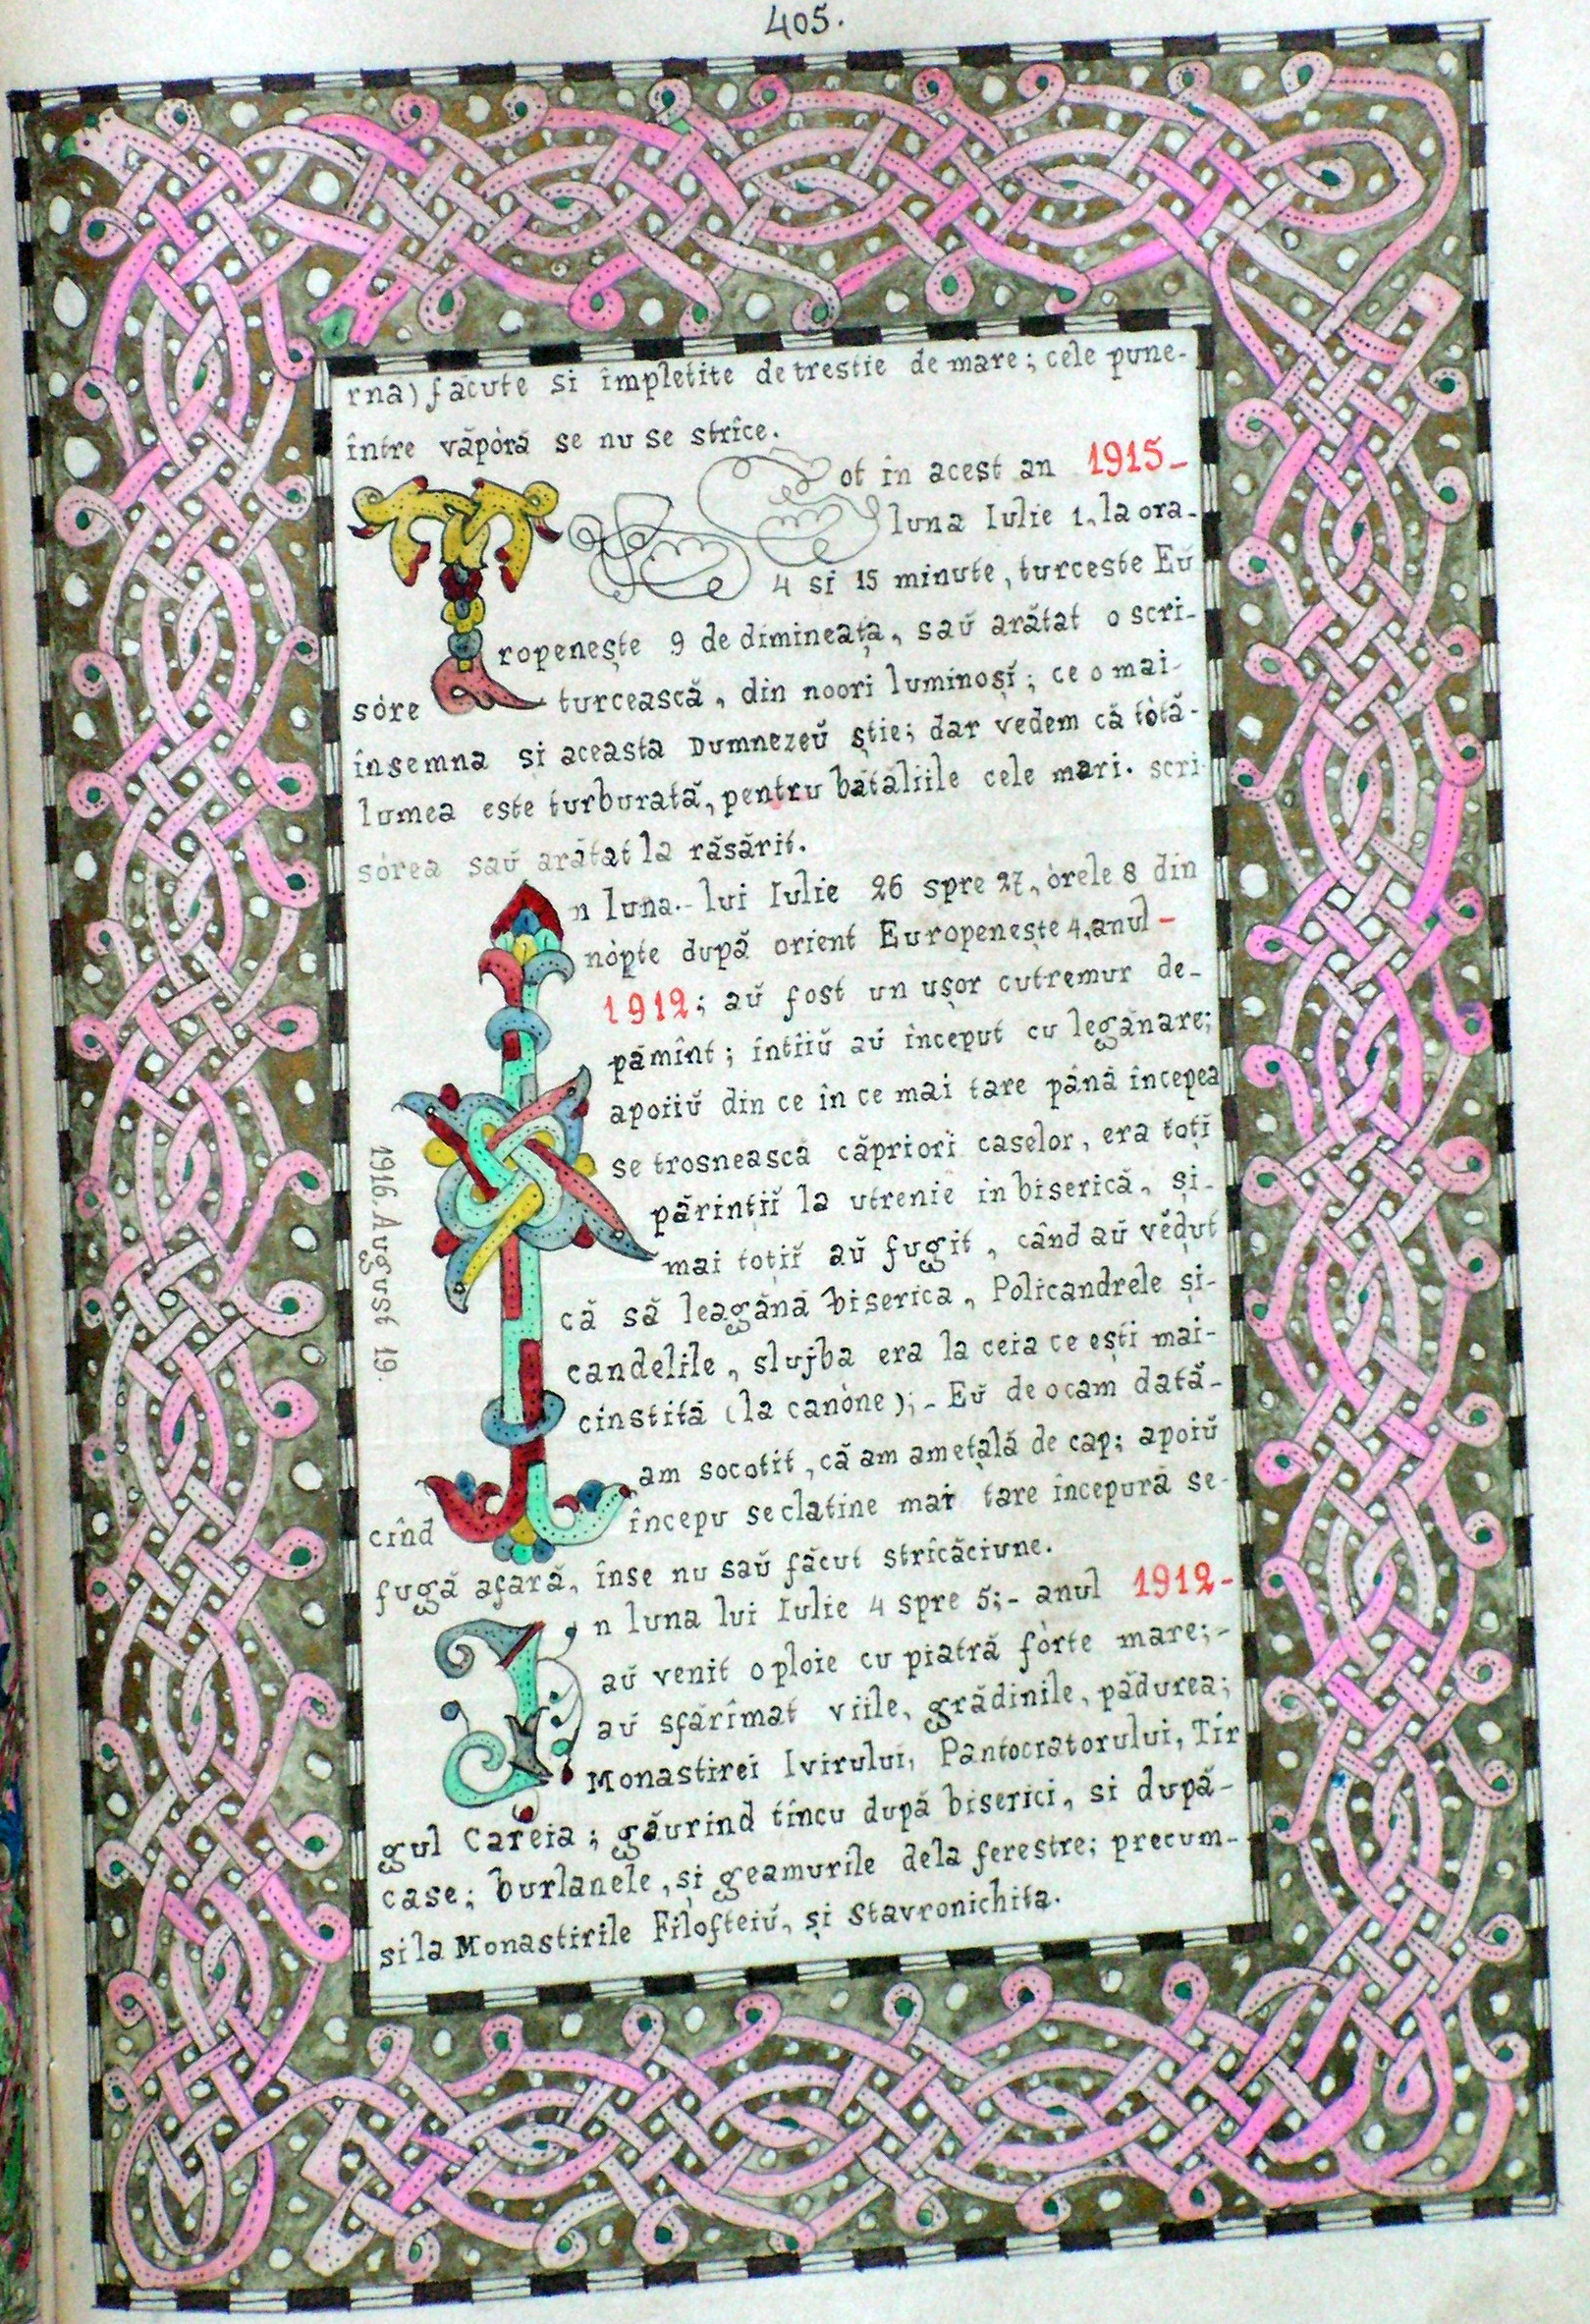 405.
rna) făcute si împletite de trestie de mare; cele pune-
între văpòră se nu se strîce.
Tot în acest an 1915-
luna Iulie 1, la ora-
4 si 15 minute, turceste Eŭ
ropenește 9 de dimineața, saŭ arătat o scri-
sóre turcească, din noori luminoșĭ; ce o mai-
însemna și aceasta Dumnezeŭ știe; dar vedem că tòtă-
lumea este turburată, pentru bătăliile cele mari. scri
sórea saŭ arătat la răsărit.
În luna.- lui Iulie 26 spre 27, òrele 8 din
nòpte după orient Europenește 4, anul-
1912; aŭ fost un ușor cutremur de-
pămînt; întiiŭ aŭ început cu legănare;
apoiiŭ din ce în ce mai tare până începea
se trosnească căpriorĭ caselor, era toțĭ
părințiĭ la utrenie in biserică, și-
mai toțiĭ aŭ fugit, când aŭ vĕḑut
că să leagănă biserica, Policandrele și-
candelile, slujba era la ceia ce eștĭ mai-
cinstită (la canòne);- Eŭ de ocam dată-
am socotit, că am amețală de cap; apoiŭ
cînd începu se clatine mai tare începură se-
fugă afară, înse nu saŭ făcut stricăciune.
În luna lui Iulie 4 spre 5;- anul 1912-
aŭ venit o ploie cu piatră fòrte mare;-
aŭ sfărîmat viile, grădinile, pădurea;
Monastirei Ivirului, Pantocratorului, Tîr
gul Careia; găurind tîncu după biserici, si după-
case; burlanele, și geamurile dela ferestre; precum-
si la Monastirile Filofteiŭ, și Stavronichita.
1916 August 19.